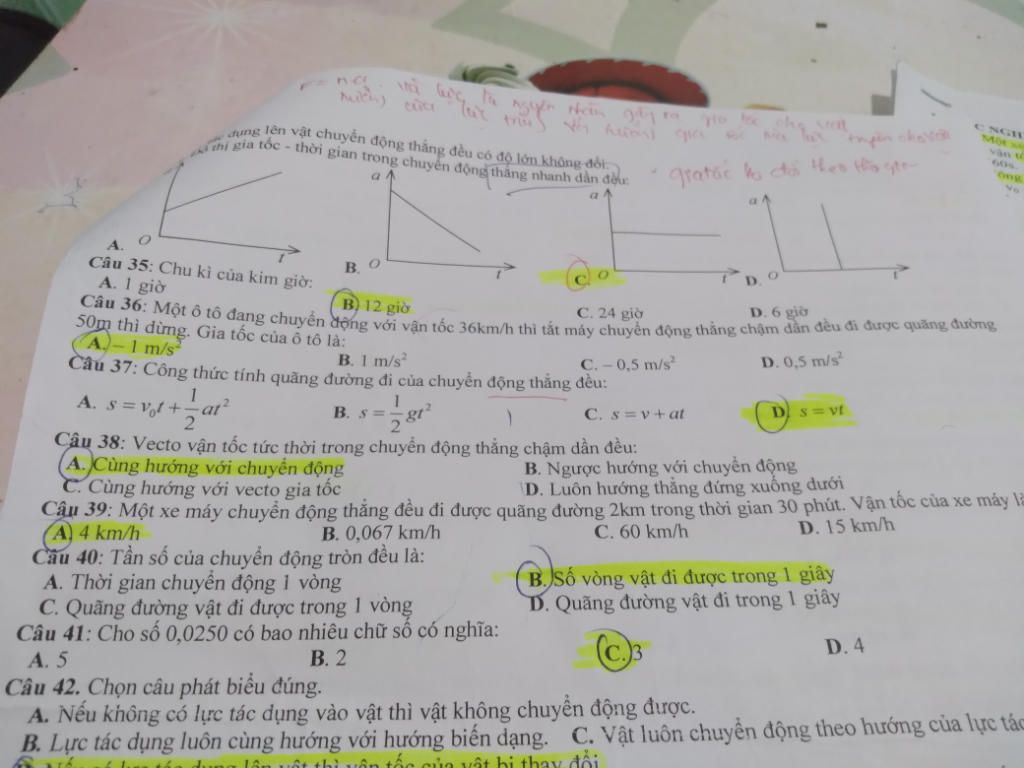 là nguyên nhân gây ra gia tốc cho vật
dụng lên vật chuyển động thẳng đều có độ lớn không đổi.
thị gia tốc - thời gian trong chuyển động thẳng nhanh dần đều:
gia tốc ko đổi theo thời gian
C NGH
Một xe
vận t
60s.
ông
a
a
a
a
A. O t
B. O t
C. O t
D. O t
Câu 35: Chu kì của kim giờ:
A. 1 giờ B. 12 giờ C. 24 giờ D. 6 giờ
Câu 36: Một ô tô đang chuyển động với vận tốc 36km/h thì tắt máy chuyển động thẳng chậm dần đều đi được quãng đường
50m thì dừng. Gia tốc của ô tô là:
A. – 1 m/s² B. 1 m/s² C. – 0,5 m/s² D. 0,5 m/s²
Câu 37: Công thức tính quãng đường đi của chuyển động thẳng đều:
A. s = v₀t + 1/2 at² B. s = 1/2 gt² C. s = v + at D. s = vt
Câu 38: Vecto vận tốc tức thời trong chuyển động thẳng chậm dần đều:
A. Cùng hướng với chuyển động B. Ngược hướng với chuyển động
C. Cùng hướng với vecto gia tốc D. Luôn hướng thẳng đứng xuống dưới
Câu 39: Một xe máy chuyển động thẳng đều đi được quãng đường 2km trong thời gian 30 phút. Vận tốc của xe máy là
A. 4 km/h B. 0,067 km/h C. 60 km/h D. 15 km/h
Câu 40: Tần số của chuyển động tròn đều là:
A. Thời gian chuyển động 1 vòng B. Số vòng vật đi được trong 1 giây
C. Quãng đường vật đi được trong 1 vòng D. Quãng đường vật đi trong 1 giây
Câu 41: Cho số 0,0250 có bao nhiêu chữ số có nghĩa:
A. 5 B. 2 C. 3 D. 4
Câu 42. Chọn câu phát biểu đúng.
A. Nếu không có lực tác dụng vào vật thì vật không chuyển động được.
B. Lực tác dụng luôn cùng hướng với hướng biến dạng. C. Vật luôn chuyển động theo hướng của lực tác
Nếu có lực tác dụng lên vật thì vận tốc của vật bị thay đổi